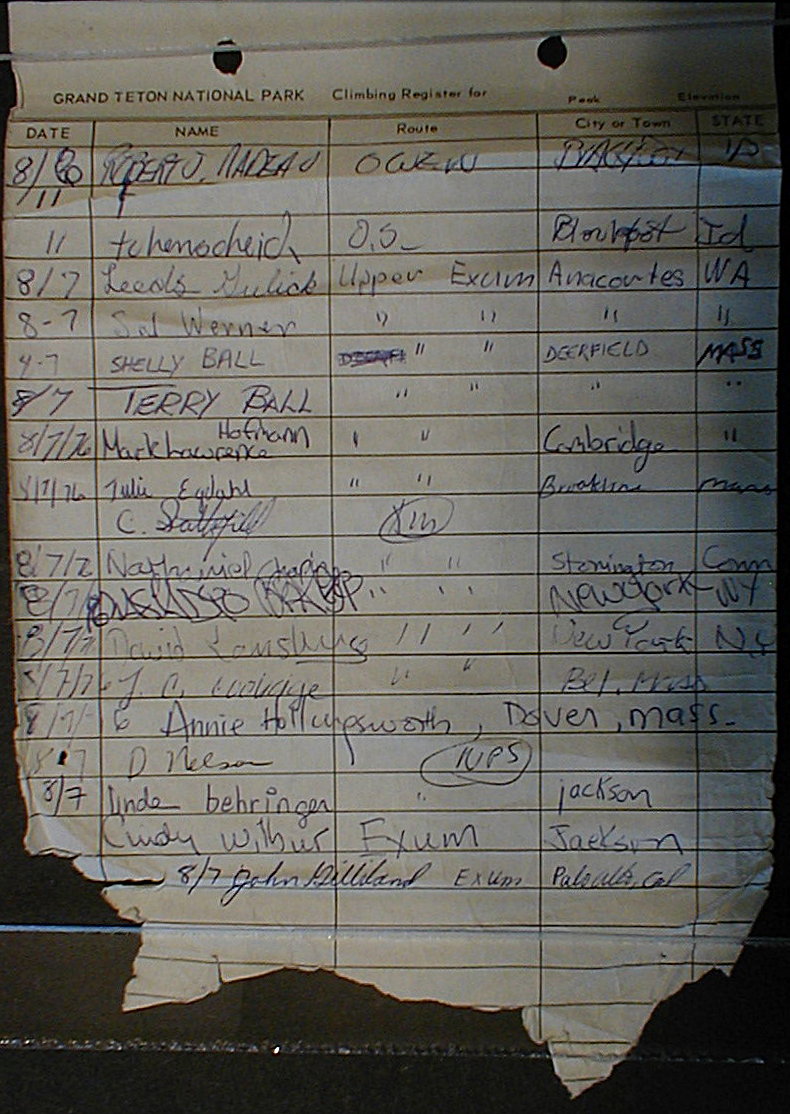 GRAND TETON NATIONAL PARK Climbing Register for Peak Elevation
DATE NAME Route City or Town STATE
8/ ROBERT J. NADEAU OWEN ID
/11
11 O.S. Id
8/7 Leeds Gulick Upper Exum Anacortes WA
8-7 Sal Werner " " " "
4-7 SHELLY BALL " " DEERFIELD MASS
8/7 TERRY BALL " " " "
8/7/76 Mark Lawrence Hofmann " " Cambridge "
8/7/76 Julie Egdahl " " Brookline Mass
C.
8/7/7 Nathaniel " " Stonington Conn
8/7/ " " New York NY
8/7/7 David " " New York N.Y
8/7/7 J. C. " " Bel. Mass
8/7/76 Annie Hollingsworth, Dover, mass.
8 7 D Nelson IUPS
8/7 linda behringer " jackson
Cindy Wilbur Exum Jackson
8/7 John Gilliland Exum Palo Alto, Cal